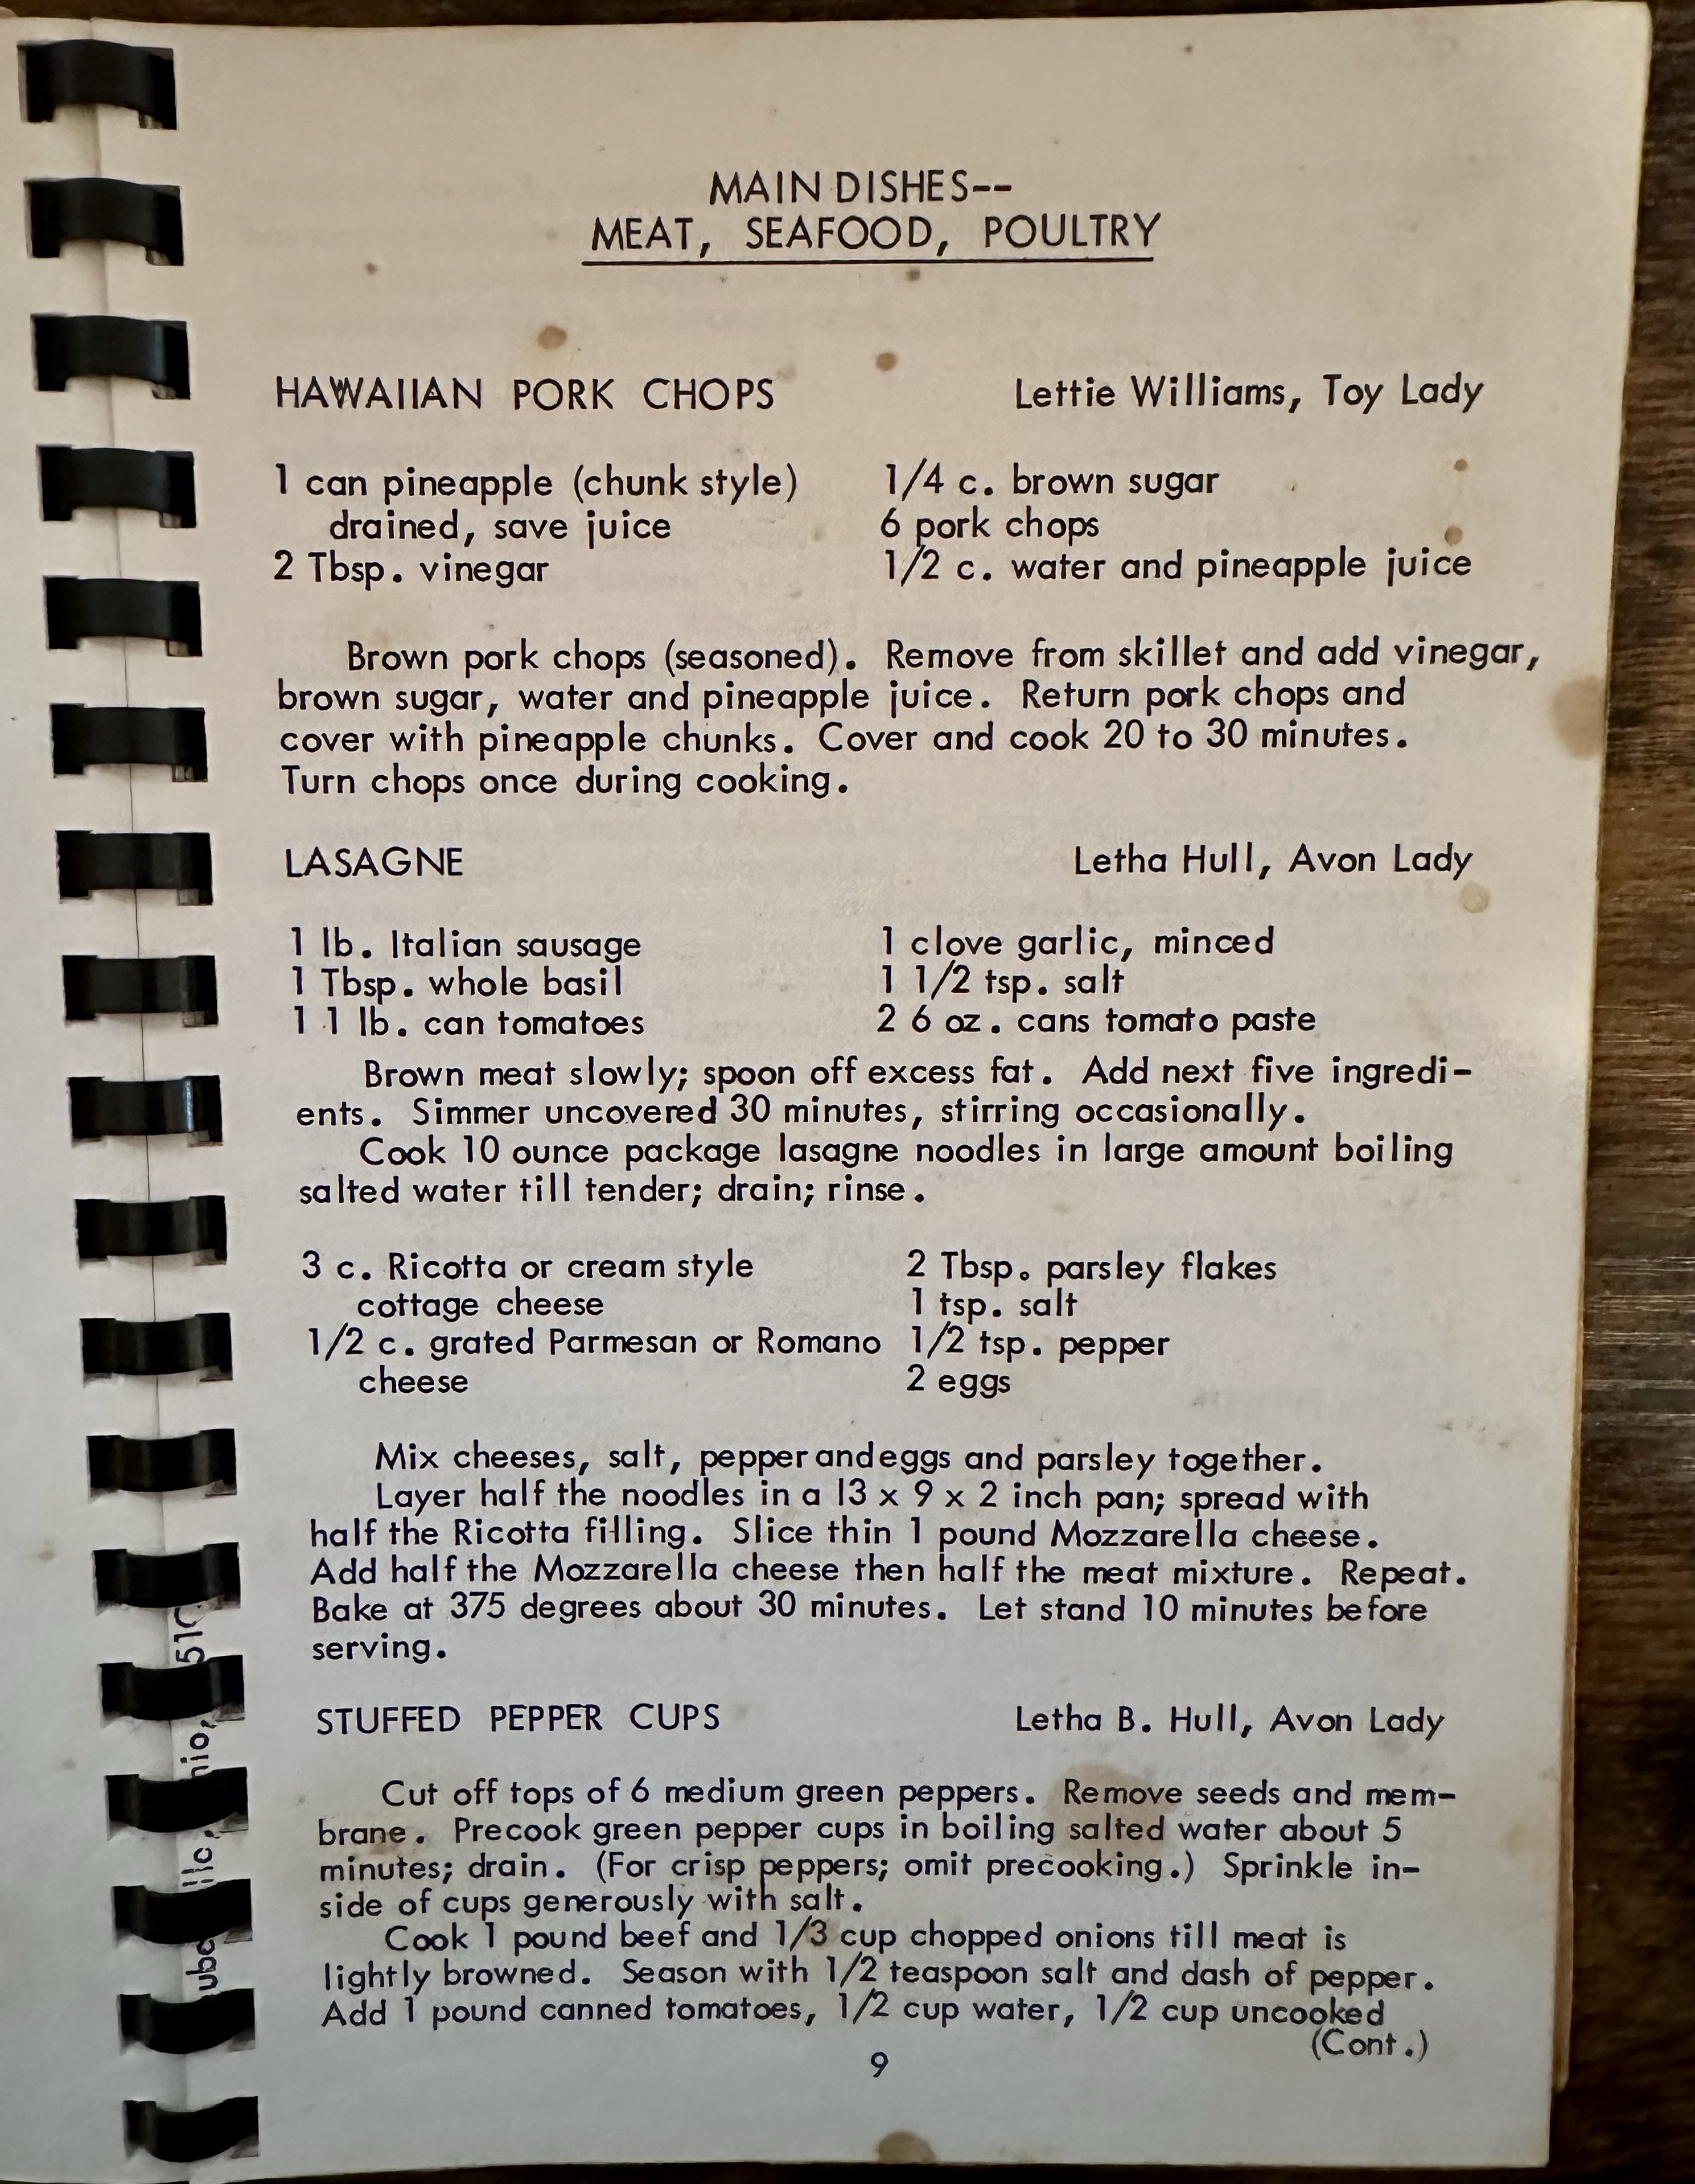 MAIN DISHES--
MEAT, SEAFOOD, POULTRY
HAWAIIAN PORK CHOPS Lettie Williams, Toy Lady
1 can pineapple (chunk style) 1/4 c. brown sugar
drained, save juice 6 pork chops
2 Tbsp. vinegar 1/2 c. water and pineapple juice
Brown pork chops (seasoned). Remove from skillet and add vinegar,
brown sugar, water and pineapple juice. Return pork chops and
cover with pineapple chunks. Cover and cook 20 to 30 minutes.
Turn chops once during cooking.
LASAGNE Letha Hull, Avon Lady
1 lb. Italian sausage 1 clove garlic, minced
1 Tbsp. whole basil 1 1/2 tsp. salt
1 1 lb. can tomatoes 2 6 oz. cans tomato paste
Brown meat slowly; spoon off excess fat. Add next five ingredi-
ents. Simmer uncovered 30 minutes, stirring occasionally.
Cook 10 ounce package lasagne noodles in large amount boiling
salted water till tender; drain; rinse.
3 c. Ricotta or cream style 2 Tbsp. parsley flakes
cottage cheese 1 tsp. salt
1/2 c. grated Parmesan or Romano 1/2 tsp. pepper
cheese 2 eggs
Mix cheeses, salt, pepper and eggs and parsley together.
Layer half the noodles in a 13 x 9 x 2 inch pan; spread with
half the Ricotta filling. Slice thin 1 pound Mozzarella cheese.
Add half the Mozzarella cheese then half the meat mixture. Repeat.
Bake at 375 degrees about 30 minutes. Let stand 10 minutes before
serving.
STUFFED PEPPER CUPS Letha B. Hull, Avon Lady
Cut off tops of 6 medium green peppers. Remove seeds and mem-
brane. Precook green pepper cups in boiling salted water about 5
minutes; drain. (For crisp peppers; omit precooking.) Sprinkle in-
side of cups generously with salt.
Cook 1 pound beef and 1/3 cup chopped onions till meat is
lightly browned. Season with 1/2 teaspoon salt and dash of pepper.
Add 1 pound canned tomatoes, 1/2 cup water, 1/2 cup uncooked
(Cont.)
9